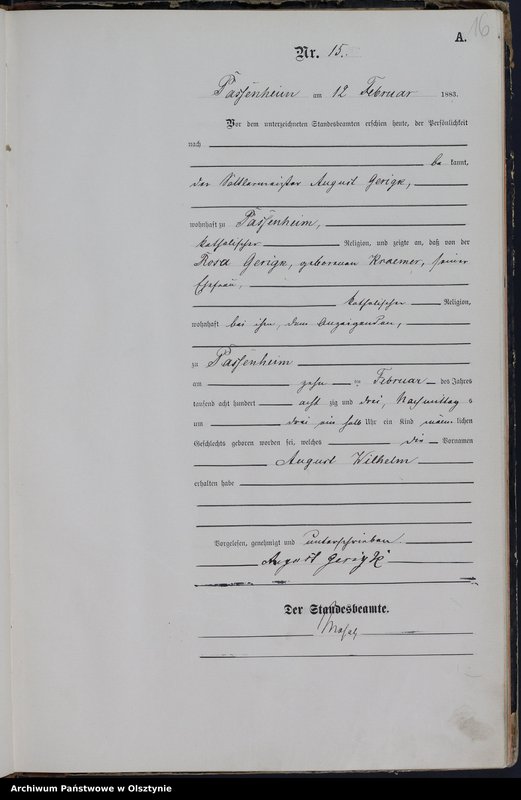 16
A.
Nr. 15.
Passenheim am 12 Februar 1883.
Vor dem unterzeichneten Standesbeamten erschien heute, der Persönlichkeit
nach
be kannt,
der Sattlermeister August Gerigk,
wohnhaft zu Passenheim,
katholischer Religion, und zeigte an, daß von der
Rosa Gerigk, geborenen Kraemer, seiner
Ehefrau,
katholischer Religion,
wohnhaft bei ihm, dem Anzeigenden,
zu Passenheim
am zehn ten Februar des Jahres
tausend acht hundert acht zig und drei, Nachmittag s
um drei ein halb Uhr ein Kind männ lichen
Geschlechts geboren worden sei, welches die Vornamen
August Wilhelm
erhalten habe
Vorgelesen, genehmigt und unterschrieben.
August Gerigk
Der Standesbeamte.
Archiwum Państwowe w Olsztynie